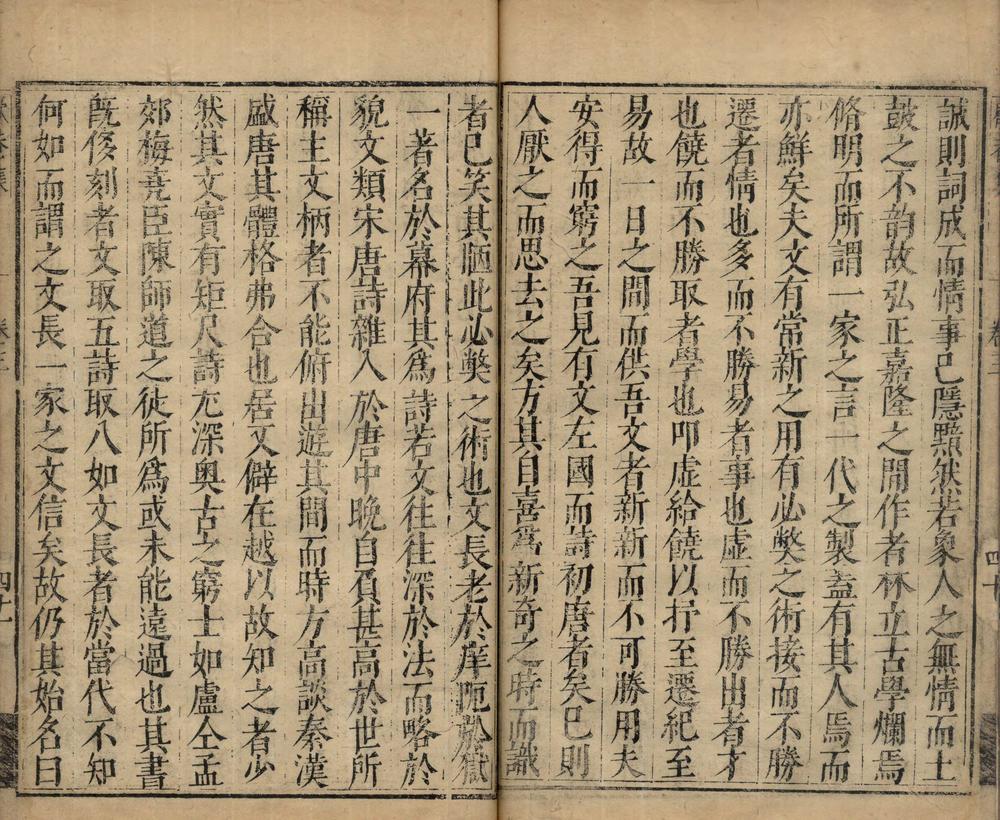 誠則詞成而情事已隱黯然若象人之無情而土
鼓之不韵故弘正嘉隆之間作者林立古學爛焉
脩明而所謂一家之言一代之製蓋有其人焉而
亦鮮矣夫文有常新之用有必獘之術接而不勝
遷者情也多而不勝易者事也虛而不勝出者才
也饒而不勝取者學也叩虛給饒以抒至遷紀至
易故一日之間而供吾文者新新而不可勝用夫
安得而窮之吾見有文左國而詩初唐者矣已則
人厭之而思去之矣方其自喜爲新奇之時而識
者已笑其陋此必獘之術也文長老於庠阨於獄
一著名於幕府其爲詩若文往往深於法而略於
貌文類宋唐詩雜入於唐中晚自負甚高於世所
稱主文柄者不能俯出遊其間而時方高談秦漢
盛唐其體格弗合也居又僻在越以故知之者少
然其文實有矩尺詩尤深奧古之窮士如盧仝孟
郊梅堯臣陳師道之徒所爲或未能遠過也其書
旣侈刻者文取五詩取八如文長者於當代不知
何如而謂之文長一家之文信矣故仍其始名曰
卷三
四十